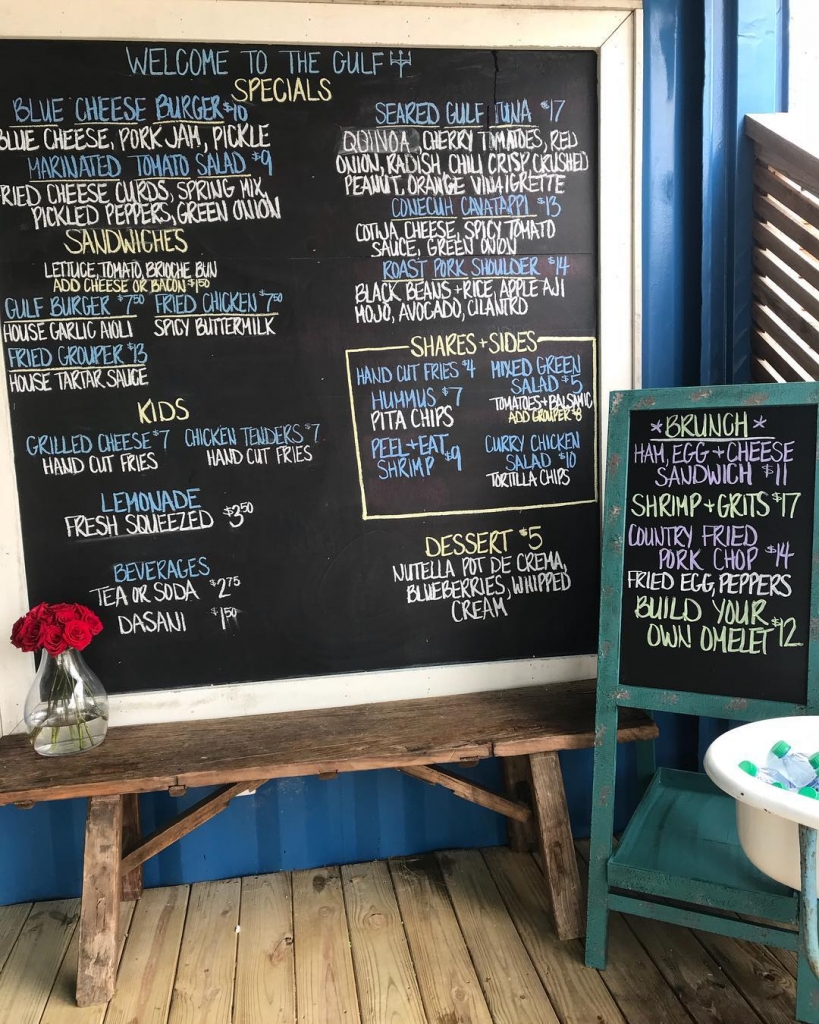 WELCOME TO THE GULF
SPECIALS
BLUE CHEESE BURGER $10
BLUE CHEESE, PORK JAM, PICKLE
MARINATED TOMATO SALAD $9
FRIED CHEESE CURDS, SPRING MIX,
PICKLED PEPPERS, GREEN ONION
SANDWICHES
LETTUCE, TOMATO, BRIOCHE BUN
ADD CHEESE OR BACON $1.50
GULF BURGER $7.50 FRIED CHICKEN $7.50
HOUSE GARLIC AIOLI SPICY BUTTERMILK
FRIED GROUPER $13
HOUSE TARTAR SAUCE
KIDS
GRILLED CHEESE $7 CHICKEN TENDERS $7
HAND CUT FRIES HAND CUT FRIES
LEMONADE
FRESH SQUEEZED $3.50
BEVERAGES
TEA OR SODA $2.75
DASANI $1.50
SEARED GULF TUNA $17
QUINOA, CHERRY TOMATOES, RED
ONION, RADISH, CHILI CRISP, CRUSHED
PEANUT, ORANGE VINAIGRETTE
CONECUH CAVATAPPI $13
COTIJA CHEESE, SPICY TOMATO
SAUCE, GREEN ONION
ROAST PORK SHOULDER $14
BLACK BEANS + RICE, APPLE AJI
MOJO, AVOCADO, CILANTRO
SHARES + SIDES
HAND CUT FRIES $4
HUMMUS $7
PITA CHIPS
PEEL + EAT
SHRIMP $9
MIXED GREEN
SALAD $5
TOMATOES + BALSAMIC
ADD GROUPER $8
CURRY CHICKEN
SALAD $10
TORTILLA CHIPS
DESSERT $5
NUTELLA POT DE CREMA,
BLUEBERRIES, WHIPPED
CREAM
*BRUNCH*
HAM, EGG + CHEESE
SANDWICH $11
SHRIMP + GRITS $17
COUNTRY FRIED
PORK CHOP $14
FRIED EGG, PEPPERS
BUILD YOUR
OWN OMELET $12